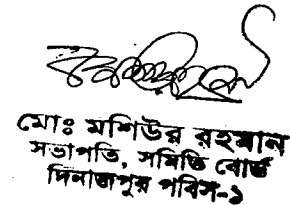 মোঃ মশিউর রহমান
সভাপতি, সমিতি বোর্ড
দিনাজপুর পবিস-১